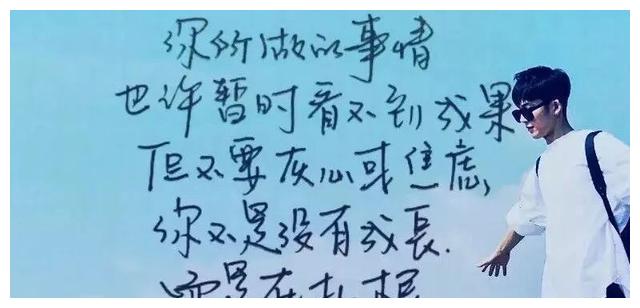 你所做的事情
也许暂时看不到成果
但不要灰心或焦虑,
你不是没有成长.
而是在扎根